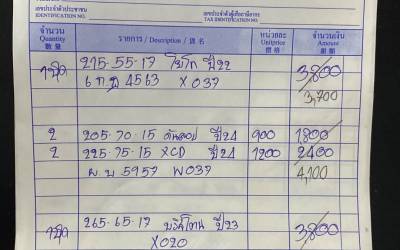 เลขประจำตัวประชาชน เลขประจำตัวผู้เสียภาษีอากร
IDENTIFICATION NO. TAX IDENTIFICATION NO.
จำนวน รายการ / Description / 項 名 หน่วยละ จำนวนเงิน
Quantity Unit/price Amount
數 量 價 格 銀 額
1ชุด 215-55-17 ปี22 3,800
6 กฎ 4563 X037 3,700
2 205-70-15 ดันลอป ปี24 900 1,800
2 225-75-15 XCD ปี24 1200 2400
ผ.บ 5957 W037 4,100
1ชุด 265-65-17 บริดโตน ปี23 3,800
X020